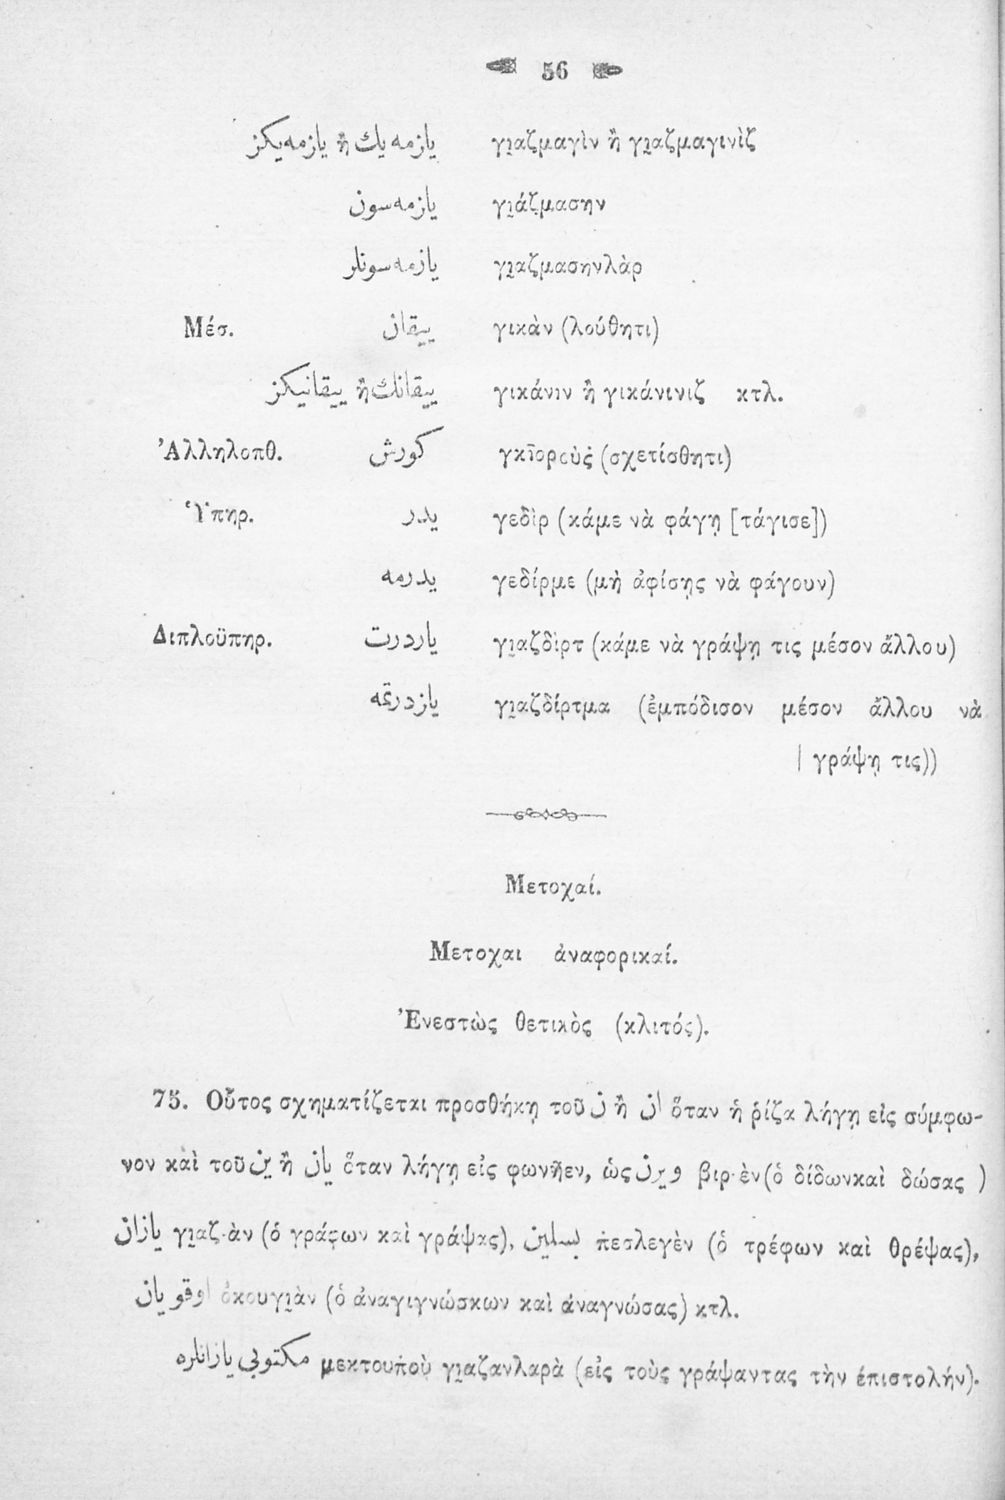 56
يازمه‌يك ἢ يازمه‌يكز γι̲αζμαγὶν ἢ γι̲αζμαγινὶζ
يازمه‌سون γι̲άζμασην
يازمه‌سونلر γι̲αζμασηνλὰρ
Μέσ. ييقان γικὰν (λούθητι)
ييقانك ἢ ييقانيكز γικάνιν ἢ γικάνινιζ κτλ.
Ἀλληλοπθ. كورش γκῑορσὺς (σχετίσθητι)
Ὑπηρ. يدر γεδὶρ (κάμε νὰ φάγῃ [τάγισε])
يدرمه γεδίρμε (μὴ ἀφίσῃς νὰ φάγουν)
Διπλοϋπηρ. ياردرت γι̲αζδὶρτ (κάμε νὰ γράψῃ τις μέσον ἄλλου)
يازدرتمه γι̲αζδίρτμα (ἐμπόδισον μέσον ἄλλου νὰ
| γράψῃ τις))
Μετοχαί.
Μετοχαι ἀναφορικαί.
Ἐνεστὼς θετικὸς (κλιτός).
75. Οὗτος σχηματίζεται προσθήκῃ τοῦ ن ἢ ان ὅταν ἡ ῥίζα λήγῃ εἰς σύμφω-
νον καὶ τοῦ ين ἢ يان ὅταν λήγῃ εἰς φωνῆεν, ὡς ويرن βιρ-ὲν (ὁ δίδωνκαὶ δώσας )
يازان γι̲αζ-ὰν (ὁ γράφων καὶ γράψας), بسلين πεσλεγὲν (ὁ τρέφων καὶ θρέψας),
اوقويان ὀκουγι̲ὰν (ὁ ἀναγιγνώσκων καὶ ἀναγνώσας) κτλ.
مكتوبى يازانلره μεκτουποὺ γι̲αζανλαρὰ (εἰς τοὺς γράψαντας τὴν ἐπιστολήν).